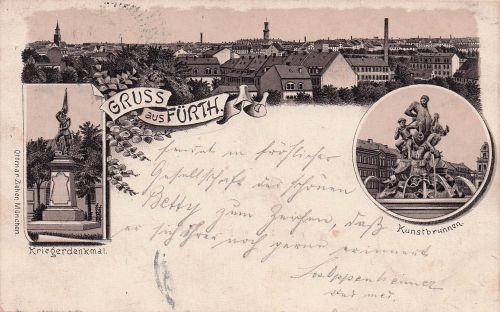 GRUSS
aus FÜRTH.
Ottmar Zieher München.
Kriegerdenkmal.
Kunstbrunnen.
sendet in fröhlicher
Gesellschaft der schönen
Betty zum Zeichen, daß
er sich ihrer noch gerne erinnert
Oppenheimer